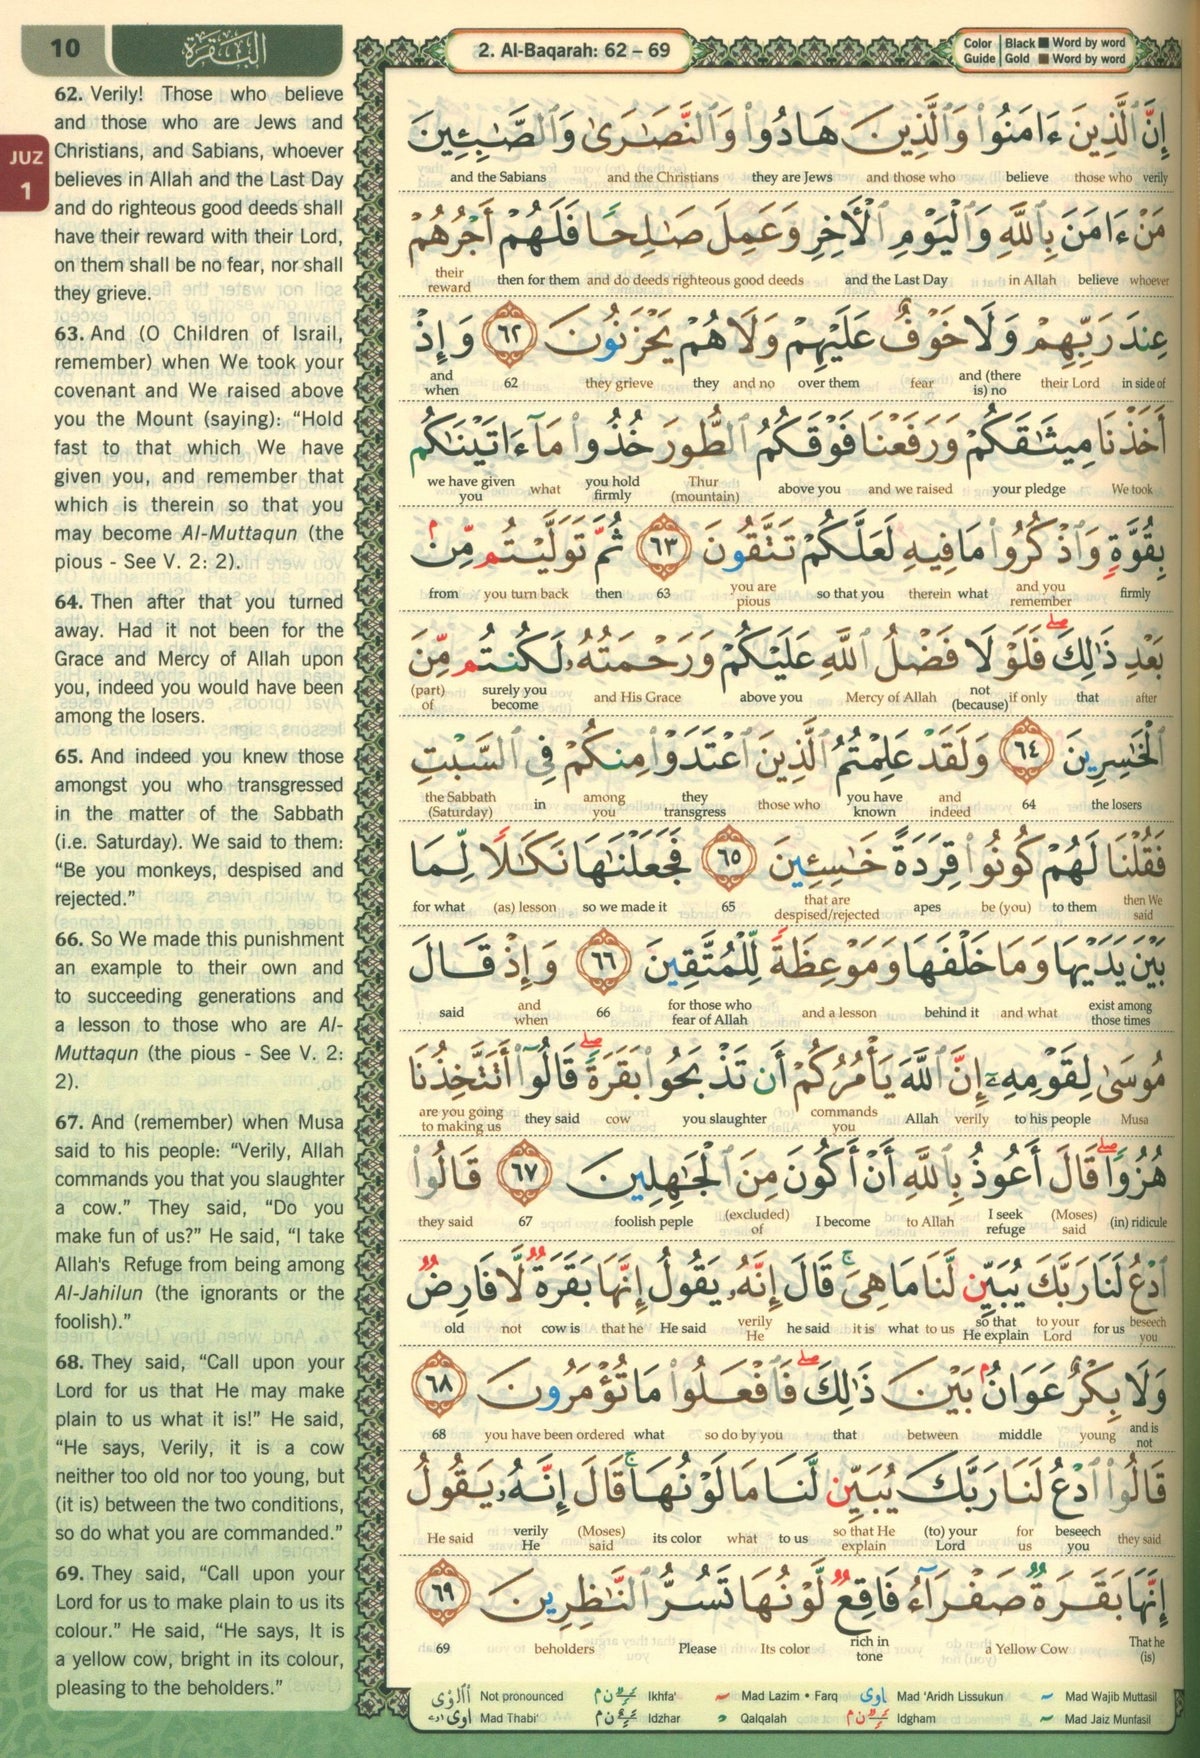 10
البقرة
2. Al-Baqarah: 62 – 69
Color Guide
Black ■ Word by word
Gold ■ Word by word
JUZ
1
62. Verily! Those who believe
and those who are Jews and
Christians, and Sabians, whoever
believes in Allah and the Last Day
and do righteous good deeds shall
have their reward with their Lord,
on them shall be no fear, nor shall
they grieve.
63. And (O Children of Israil,
remember) when We took your
covenant and We raised above
you the Mount (saying): “Hold
fast to that which We have
given you, and remember that
which is therein so that you
may become Al-Muttaqun (the
pious - See V. 2: 2).
64. Then after that you turned
away. Had it not been for the
Grace and Mercy of Allah upon
you, indeed you would have been
among the losers.
65. And indeed you knew those
amongst you who transgressed
in the matter of the Sabbath
(i.e. Saturday). We said to them:
“Be you monkeys, despised and
rejected.”
66. So We made this punishment
an example to their own and
to succeeding generations and
a lesson to those who are Al-
Muttaqun (the pious - See V. 2:
2).
67. And (remember) when Musa
said to his people: “Verily, Allah
commands you that you slaughter
a cow.” They said, “Do you
make fun of us?” He said, “I take
Allah's Refuge from being among
Al-Jahilun (the ignorants or the
foolish).”
68. They said, “Call upon your
Lord for us that He may make
plain to us what it is!” He said,
“He says, Verily, it is a cow
neither too old nor too young, but
(it is) between the two conditions,
so do what you are commanded.”
69. They said, “Call upon your
Lord for us to make plain to us its
colour.” He said, “He says, It is
a yellow cow, bright in its colour,
pleasing to the beholders.”
إِنَّ ٱلَّذِينَ ءَامَنُوا۟ وَٱلَّذِينَ هَادُوا۟ وَٱلنَّصَـٰرَىٰ وَٱلصَّـٰبِـِٔينَ
and the Sabians and the Christians they are Jews and those who believe those who verily
مَنْ ءَامَنَ بِٱللَّهِ وَٱلْيَوْمِ ٱلْـَٔاخِرِ وَعَمِلَ صَـٰلِحًا فَلَهُمْ أَجْرُهُمْ
their reward then for them and do deeds righteous good deeds and the Last Day in Allah believe whoever
عِندَ رَبِّهِمْ وَلَا خَوْفٌ عَلَيْهِمْ وَلَا هُمْ يَحْزَنُونَ ٦٢ وَإِذْ
and when 62 they grieve they and no over them fear and (there is) no their Lord in side of
أَخَذْنَا مِيثَـٰقَكُمْ وَرَفَعْنَا فَوْقَكُمُ ٱلطُّورَ خُذُوا۟ مَآ ءَاتَيْنَـٰكُم
we have given you what you hold firmly Thur (mountain) above you and we raised your pledge We took
بِقُوَّةٍ وَٱذْكُرُوا۟ مَا فِيهِ لَعَلَّكُمْ تَتَّقُونَ ٦٣ ثُمَّ تَوَلَّيْتُم مِّنۢ
from you turn back then 63 you are pious so that you therein what and you remember firmly
بَعْدِ ذَٰلِكَ ۖ فَلَوْلَا فَضْلُ ٱللَّهِ عَلَيْكُمْ وَرَحْمَتُهُۥ لَكُنتُم مِّنَ
(part) of surely you become and His Grace above you Mercy of Allah not (because) if only that after
ٱلْخَـٰسِرِينَ ٦٤ وَلَقَدْ عَلِمْتُمُ ٱلَّذِينَ ٱعْتَدَوْا۟ مِنكُمْ فِى ٱلسَّبْتِ
the Sabbath (Saturday) in among you they transgress those who you have known and indeed 64 the losers
فَقُلْنَا لَهُمْ كُونُوا۟ قِرَدَةً خَـٰسِـِٔينَ ٦٥ فَجَعَلْنَـٰهَا نَكَـٰلًا لِّمَا
for what (as) lesson so we made it 65 that are despised/rejected apes be (you) to them then We said
بَيْنَ يَدَيْهَا وَمَا خَلْفَهَا وَمَوْعِظَةً لِّلْمُتَّقِينَ ٦٦ وَإِذْ قَالَ
said and when 66 for those who fear of Allah and a lesson behind it and what exist among those times
مُوسَىٰ لِقَوْمِهِۦٓ إِنَّ ٱللَّهَ يَأْمُرُكُمْ أَن تَذْبَحُوا۟ بَقَرَةً ۖ قَالُوٓا۟ أَتَتَّخِذُنَا
are you going to making us they said cow you slaughter commands you Allah verily to his people Musa
هُزُوًا ۖ قَالَ أَعُوذُ بِٱللَّهِ أَنْ أَكُونَ مِنَ ٱلْجَـٰهِلِينَ ٦٧ قَالُوا۟
they said 67 foolish peple (excluded) of I become to Allah I seek refuge (Moses) said (in) ridicule
ٱدْعُ لَنَا رَبَّكَ يُبَيِّن لَّنَا مَا هِىَ ۚ قَالَ إِنَّهُۥ يَقُولُ إِنَّهَا بَقَرَةٌ لَّا فَارِضٌ
old not cow is that he He said verily He he said it is what to us so that He explain to your Lord for us beseech you
وَلَا بِكْرٌ عَوَانٌۢ بَيْنَ ذَٰلِكَ ۖ فَٱفْعَلُوا۟ مَا تُؤْمَرُونَ ٦٨
68 you have been ordered what so do by you that between middle young and is not
قَالُوا۟ ٱدْعُ لَنَا رَبَّكَ يُبَيِّن لَّنَا مَا لَوْنُهَا ۚ قَالَ إِنَّهُۥ يَقُولُ
He said verily He (Moses) said its color what to us so that He explain (to) your Lord for us beseech you they said
إِنَّهَا بَقَرَةٌ صَفْرَآءُ فَاقِعٌ لَّوْنُهَا تَسُرُّ ٱلنَّـٰظِرِينَ ٦٩
69 beholders Please Its color rich in tone a Yellow Cow That he (is)
Not pronounced Ikhfa' Mad Lazim • Farq Mad 'Aridh Lissukun Mad Wajib Muttasil
Mad Thabi' Idzhar Qalqalah Idgham Mad Jaiz Munfasil